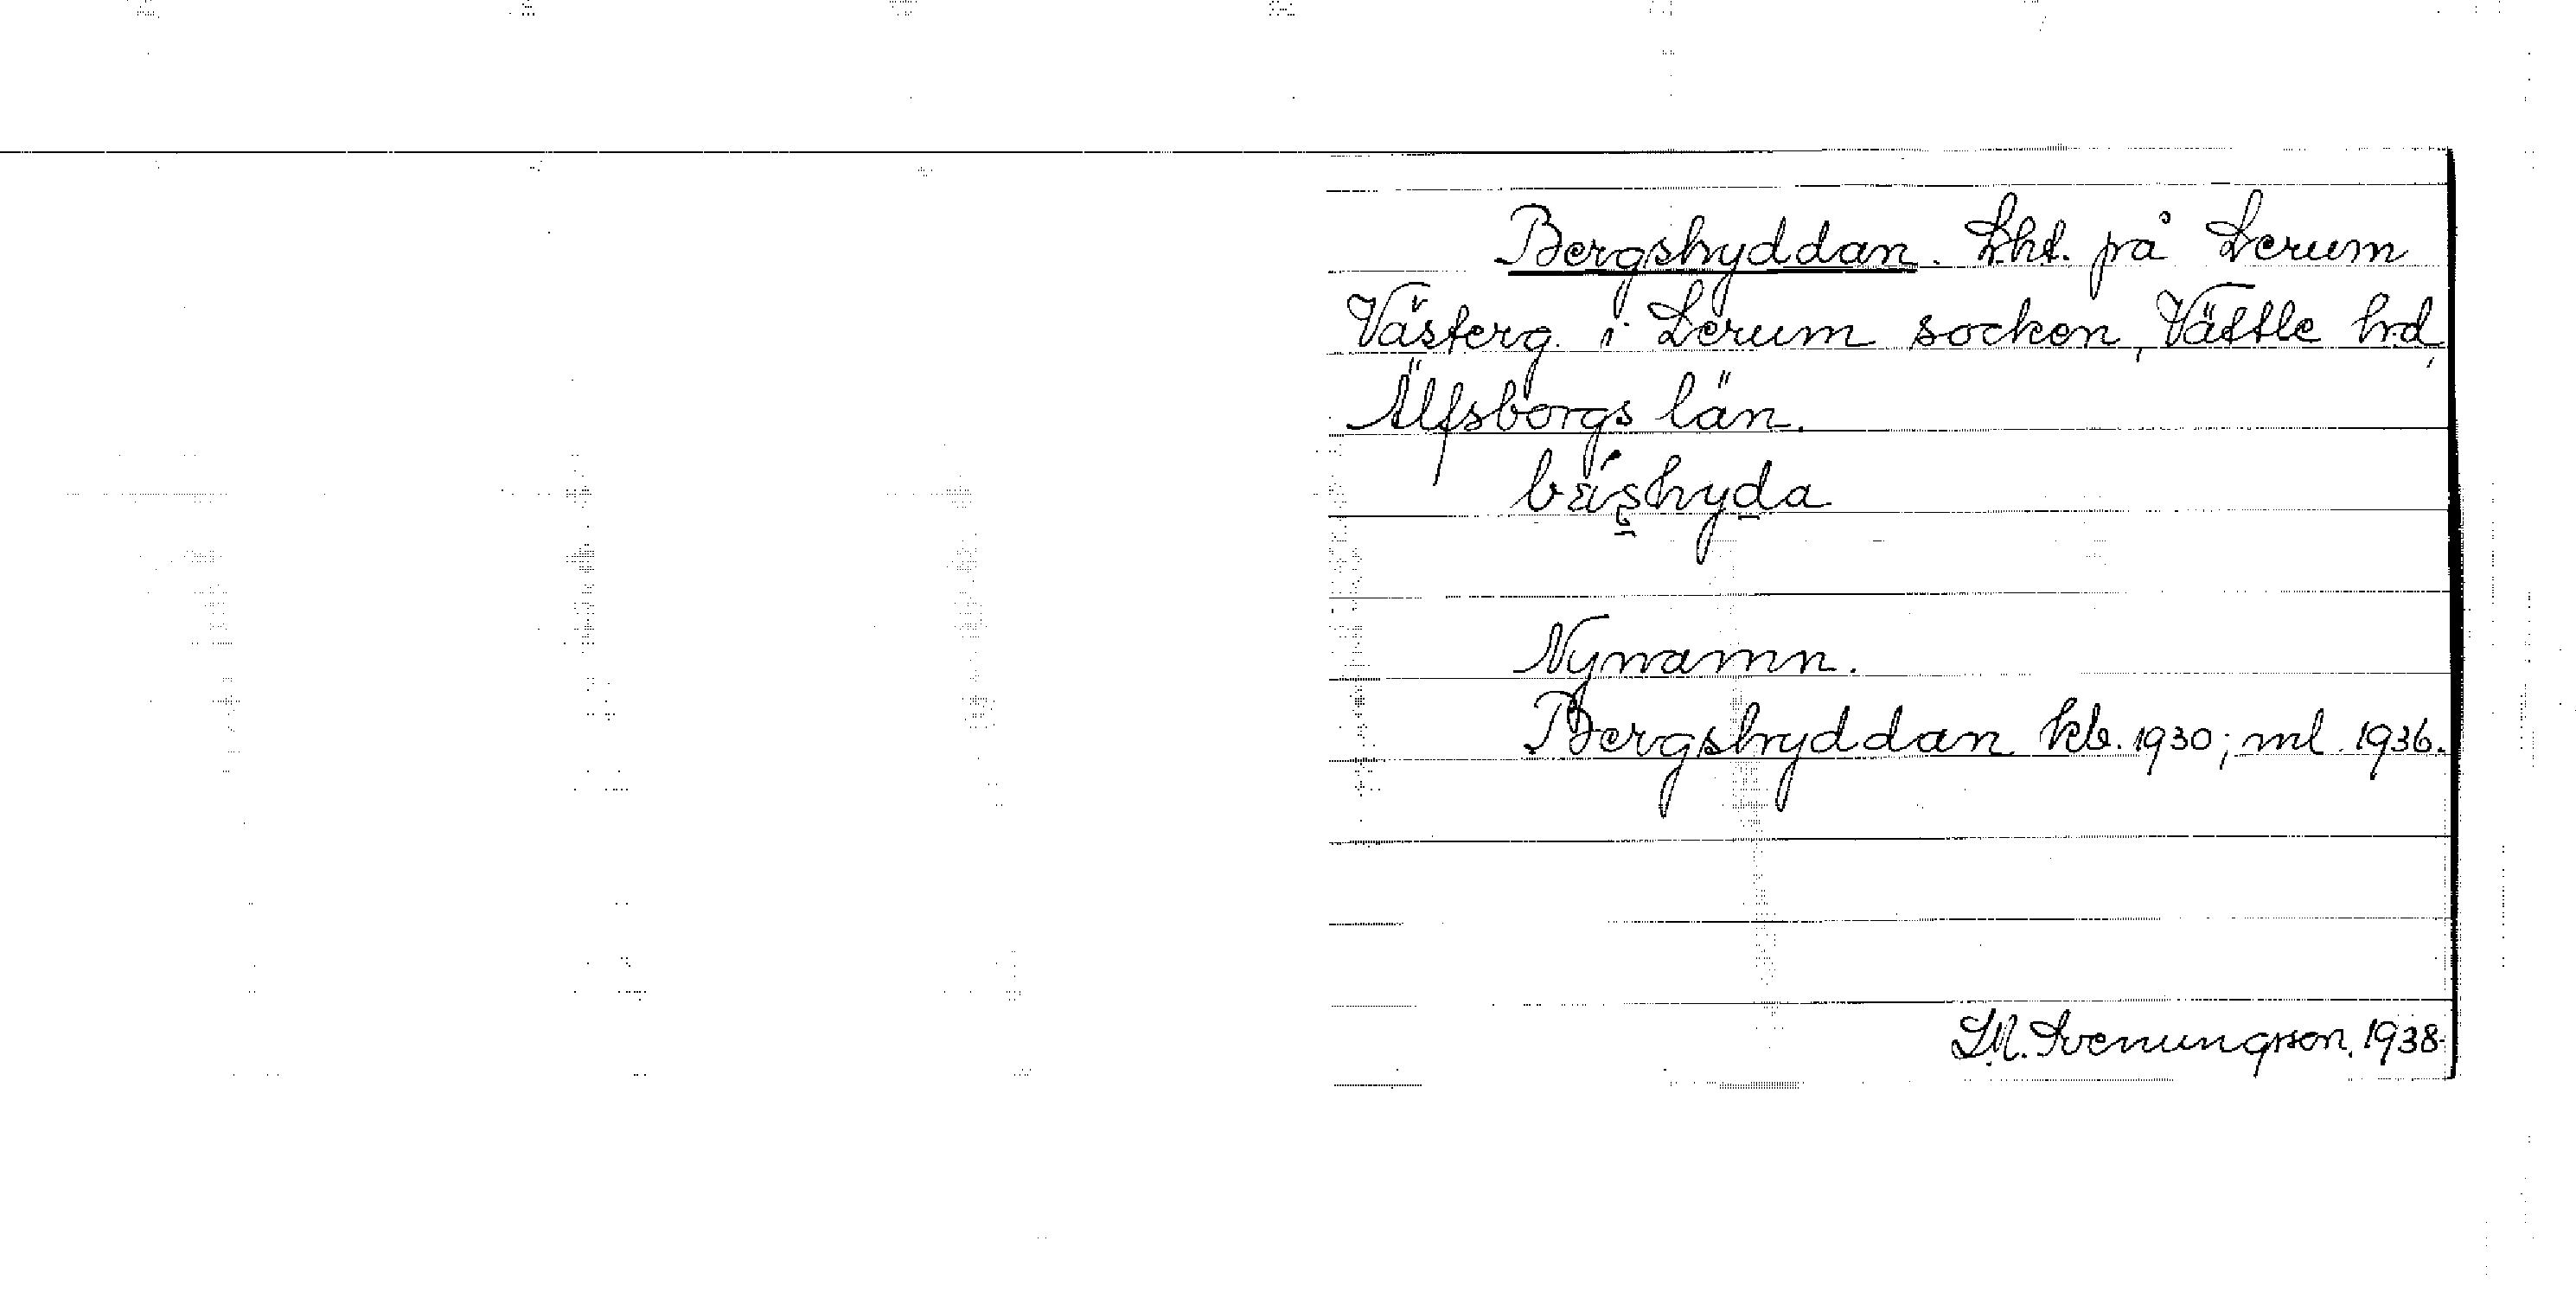 Bergshyddan. Lht. på Lerum
Västerg. i Lerum socken, Vättle hrd,
Älfsborgs län.
Nynamn.
Bergshyddan kb. 1930; ml 1936.
S.M. Svenungsson. 1938.